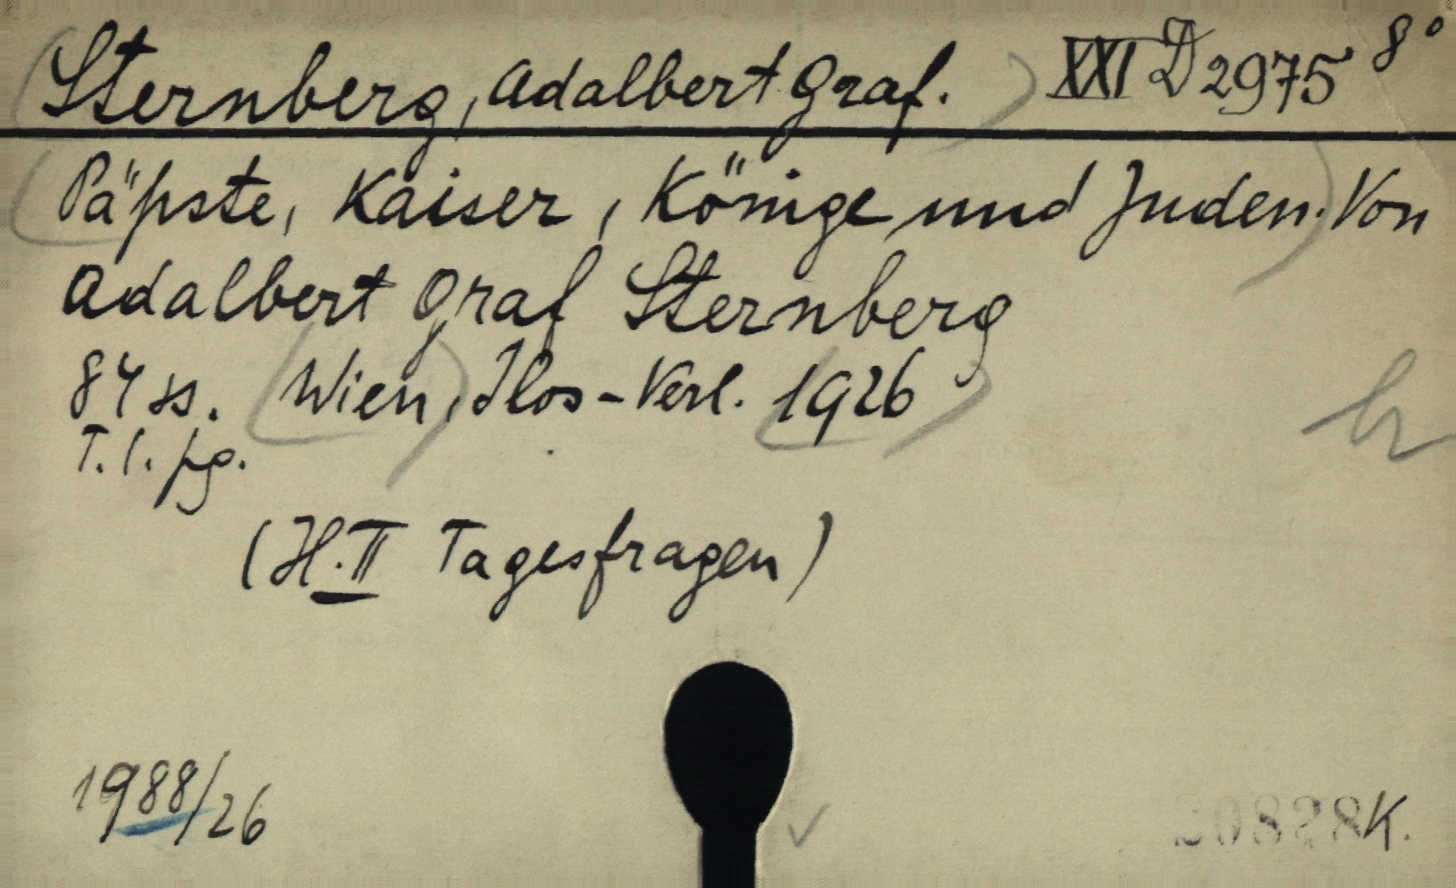 Sternberg, Adalbert Graf. XXI D 2975 8°
Päpste, Kaiser, Könige und Juden. Von
Adalbert Graf Sternberg
84 ss. Wien, Ilos-Verl. 1926
T. l. pg.
(H. II Tagesfragen)
1988/26
20828 K.